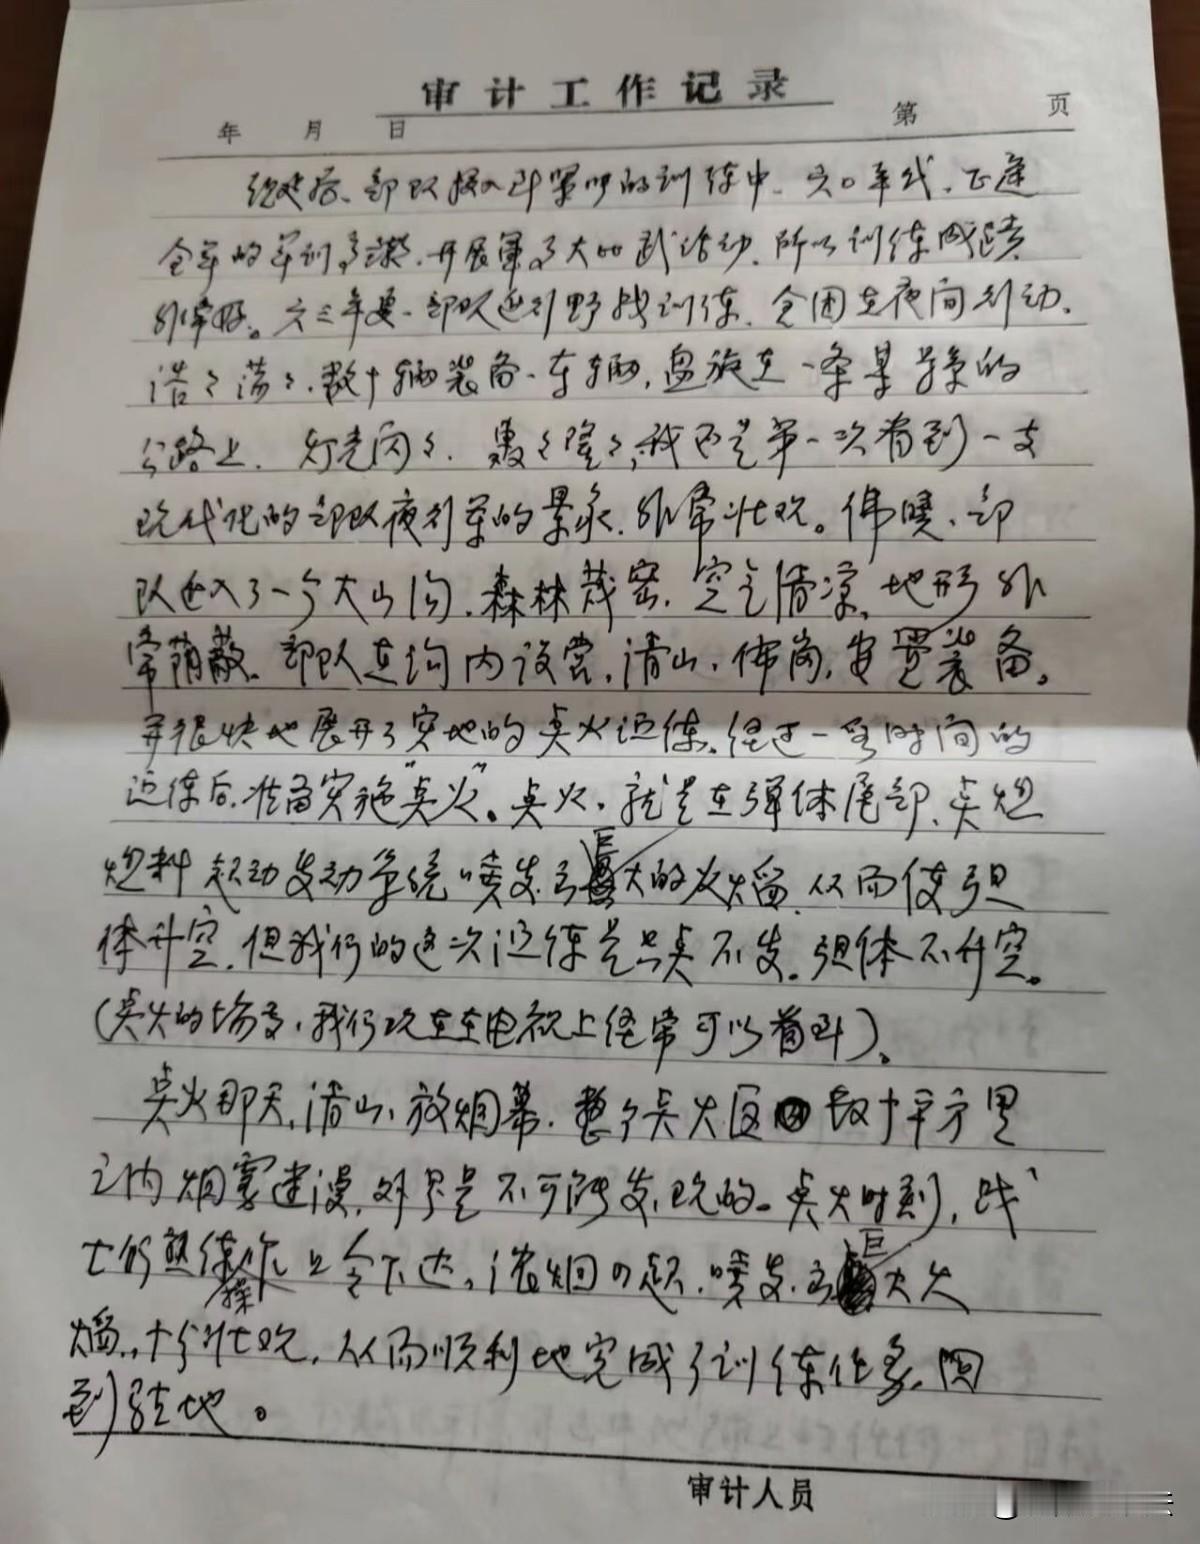 审计工作记录
年 月 日 第 页
组建后、部队投入到紧张的训练中、六〇年代、正逢
全军的军训高潮、开展军事大比武活动、所以训练成绩
非常好。六三年夏、部队进行野战训练、全团在夜间行动、
浩々荡々、数十辆装备、车辆，盘旋在一条某县的
公路上、灯光闪々、轰々隆々，我还是第一次看到一支
现代化的部队夜行军的景象、非常壮观。佛晓、部
队进入了一个大山沟，森林茂密，空气清凉、地形非
常荫蔽、部队在沟内设营，清山、佈岗，安置装备。
并很快地展开了实地的点火训练。经过一段时间的
训练后，准备实施“点火”。点火，就是在弹体尾部、点燃
燃料起动发动系统喷发出巨大的火焰，从而使弹
体升空，但我们的这次训练是只点不发。弹体不升空。
(点火的场高，我们现在在电视上经常可以看到)。
点火那天，清山、放烟幕，整个点火区 数十平方里
之内烟雾迷漫，外界是不可能发现的。点火时刻，战
士们熟练操作 口令下达，浓烟四起，喷发出巨大火
焰，十分壮观，从而顺利地完成了训练任务，回
到驻地。
审计人员